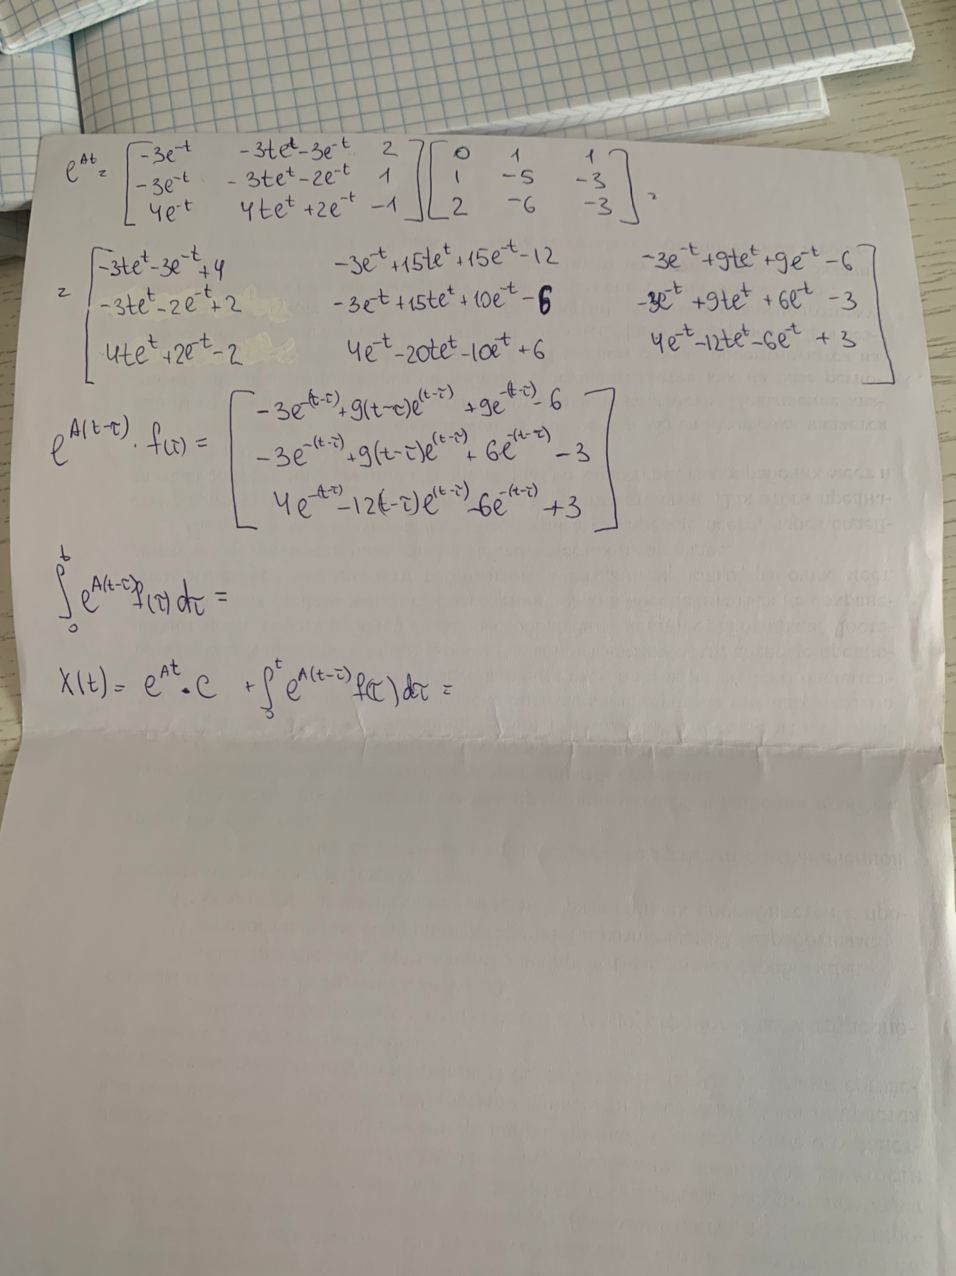 e^{At} = [ -3e^{-t}  -3te^{t}-3e^{-t}  2 ] [ 0  1  1 ]
[ -3e^{-t}  -3te^{t}-2e^{-t}  1 ] [ 1  -5  -3 ] =
[ 4e^{-t}  4te^{t}+2e^{-t}  -1 ] [ 2  -6  -3 ]
[ -3te^{t}-3e^{-t}+4  -3e^{-t}+15te^{t}+15e^{-t}-12  -3e^{-t}+9te^{t}+9e^{-t}-6 ]
= [ -3te^{t}-2e^{-t}+2  -3e^{-t}+15te^{t}+10e^{-t}-6  -3e^{-t}+9te^{t}+6e^{-t}-3 ]
[ 4te^{t}+2e^{-t}-2  4e^{-t}-20te^{t}-10e^{-t}+6  4e^{-t}-12te^{t}-6e^{-t}+3 ]
[ -3e^{-(t-τ)}+9(t-τ)e^{(t-τ)}+9e^{-(t-τ)}-6 ]
e^{A(t-τ)}·f(τ) = [ -3e^{-(t-τ)}+9(t-τ)e^{(t-τ)}+6e^{-(t-τ)}-3 ]
[ 4e^{-(t-τ)}-12(t-τ)e^{(t-τ)}-6e^{-(t-τ)}+3 ]
∫_0^t e^{A(t-τ)}f(τ)dτ =
X(t) = e^{At}·C + ∫_0^t e^{A(t-τ)}f(τ)dτ =